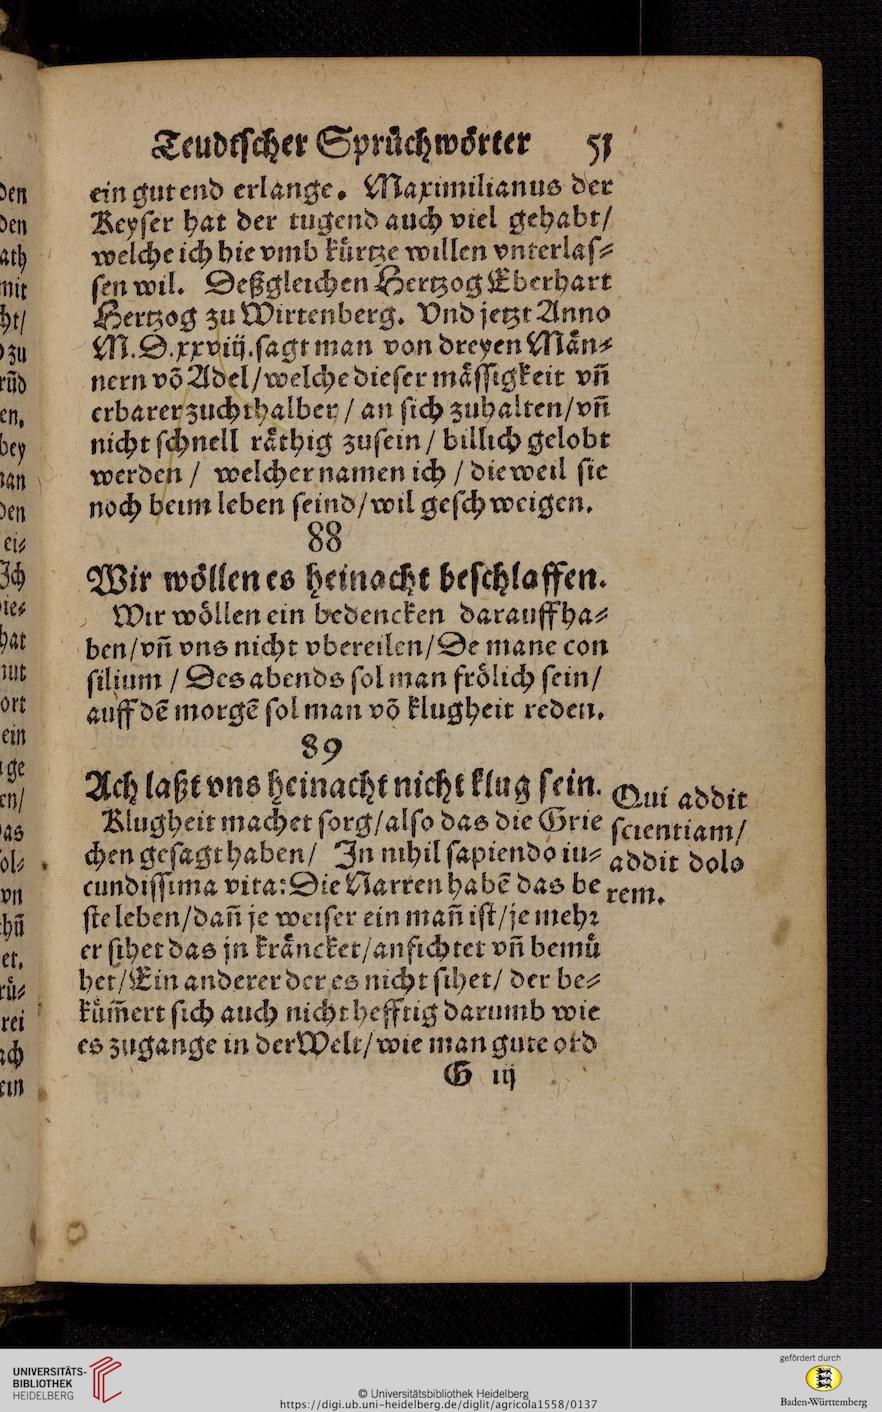 Teudtscher Sprüchwörter 51
ein gut end erlange. Maximilianus der
Keyser hat der tugend auch viel gehabt/
welche ich hie vmb kürtze willen vnterlas⸗
sen wil. Deßgleichen Hertzog Eberhart
Hertzog zu Wirtenberg. Vnd jetzt Anno
M.D.xxviij. sagt man von dreyen Män⸗
nern võ Adel/welche dieser mässigkeit vñ
erbarer zucht halber/ an sich zuhalten/vñ
nicht schnell räthig zusein/ billich gelobt
werden / welcher namen ich / dieweil sie
noch beim leben seind/wil geschweigen.
88
Wir wöllen es heinacht beschlaffen.
Wir wöllen ein bedencken darauff ha⸗
ben/vñ vns nicht vbereilen/De mane con
silium / Des abends sol man frölich sein/
auff dẽ morgẽ sol man võ klugheit reden.
89
Ach laßt vns heinacht nicht klug sein.
Klugheit machet sorg/also das die Grie
chen gesagt haben/ In nihil sapiendo iu⸗
cundissima vita: Die Narren habẽ das be
ste leben/dañ je weiser ein mañ ist/je mehr
er sihet das jn kräncket/anfichtet vñ bemü
het/Ein anderer der es nicht sihet/ der be⸗
küm̃ert sich auch nicht hefftig darumb wie
es zugange in der Welt/wie man gute ord
G iij
Qui addit
scientiam/
addit dolo
rem.
den
den
ath
mit
ht/
zu
rũd
en.
bey
man
den
ei⸗
Ich
ie⸗
hat
mut
ort
ein
ge
en/
das
sol⸗
vñ
thũ
et.
rü⸗
rei
ich
ein
UNIVERSITÄTS-
BIBLIOTHEK
HEIDELBERG
© Universitätsbibliothek Heidelberg
https://digi.ub.uni-heidelberg.de/diglit/agricola1558/0137
gefördert durch
Baden-Württemberg